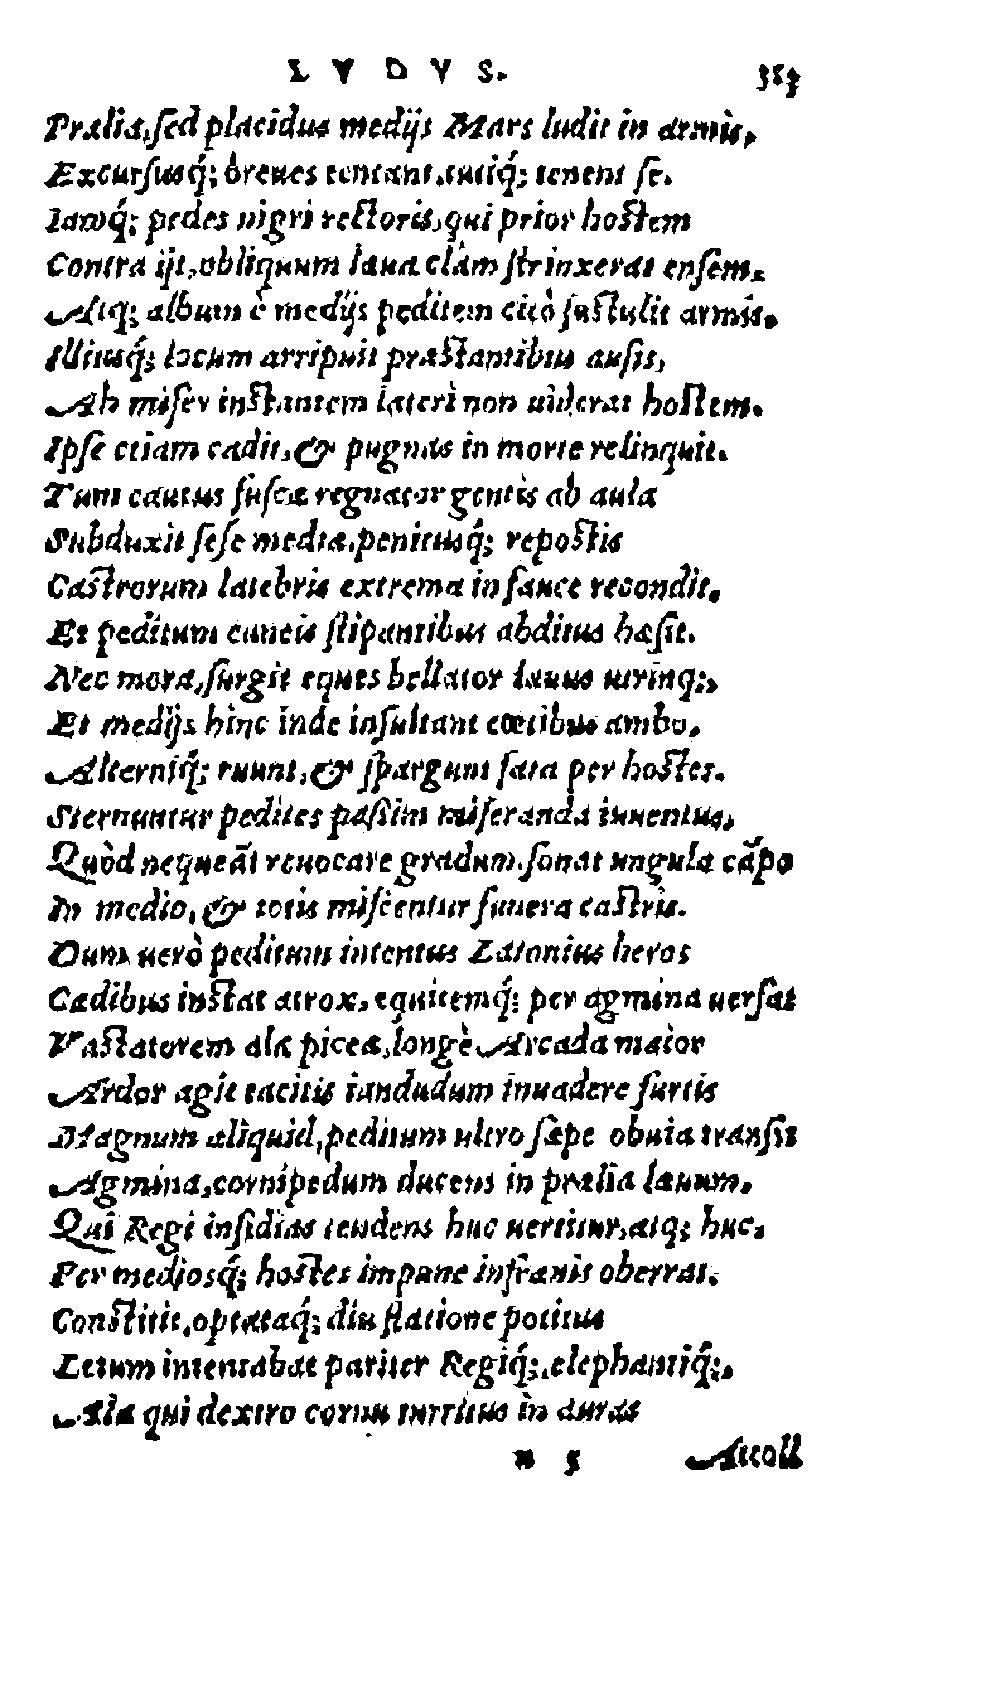 LVDVS. 353
Prælia, sed placidus medijs Mars ludit in armis,
Excursusq́; breues tentant, tutiq́; tenent se.
Iamq́; pedes nigri rectoris, qui prior hostem
Contra ijt, obliquum læua clàm strinxerat ensem.
Atq; album è medijs peditem citò sustulit armis.
Illiusq́; locum arripuit præstantibus ausis,
Ah miser instantem laterì non uiderat hostem.
Ipse etiam cadit, & pugnas in morte relinquit.
Tum cautus fuscæ regnator gentis ab aula
Subduxit sese media, penitusq́; repostis
Castrorum latebris extrema in fauce recondit.
Et peditum cuneis stipantibus abditus hæsit.
Nec mora, surgit eques bellator læuus utrinq;,
Et medijs hinc inde insultant cœtibus ambo.
Alterniq́; ruunt, & spargunt fata per hostes.
Sternuntur pedites passim miseranda iuuentus,
Quòd nequeāt reuocare gradum, sonat ungula cāpo
In medio, & totis miscentur funera castris.
Dum uerò peditum intentus Latonius heros
Cædibus instat atrox, equitemq́; per agmina uersat
Vastatorem alæ piceæ, longè Arcada maior
Ardor agit tacitis iandudum inuadere furtis
Magnum aliquid, peditum ultro sæpe obuia transit
Agmina, cornipedum ducens in prælia læuum.
Qui Regi insidias tendens huc uertitur, atq; huc.
Per mediosq́; hostes impune infrænis oberrat.
Constitit, optataq́; diu statione potitus
Letum intentabat pariter Regiq́;, elephantiq́;,
Alæ qui dextro cornu turritus in auras
n 5 Attoll